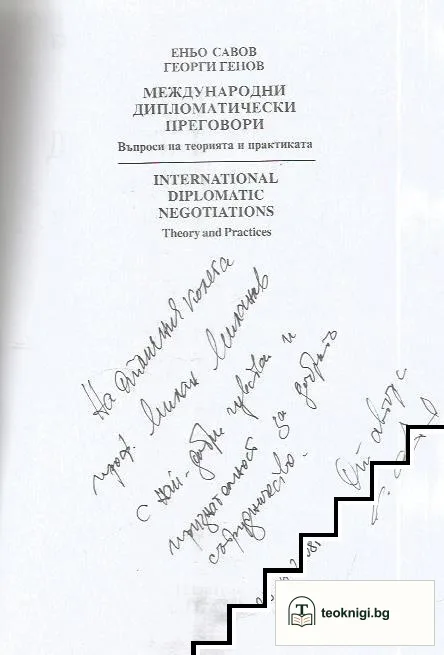 ЕНЬО САВОВ
ГЕОРГИ ГЕНОВ
МЕЖДУНАРОДНИ
ДИПЛОМАТИЧЕСКИ
ПРЕГОВОРИ
Въпроси на теорията и практиката
INTERNATIONAL
DIPLOMATIC
NEGOTIATIONS
Theory and Practices
На отличния колега
проф.
с най-добри чувства и
признателност за доброто
сътрудничество.
От автора
teoknigi.bg